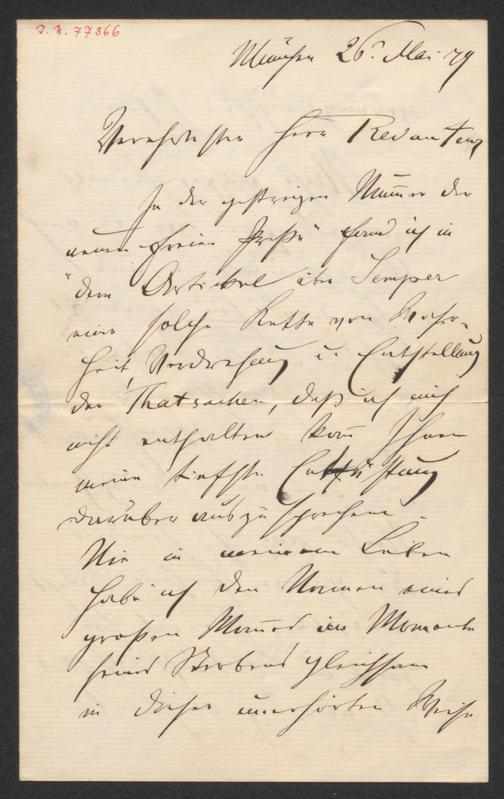 J. N. 77366
München 26. Mai 79
Verehrtester Herr Redakteur
In der gestrigen Nummer der
neuen freien Presse" fand ich in
"dem Artikel über Semper
eine solche Kette von
heit, Verdrehung u. Entstellung
der Thatsachen, daß ich mich
nicht enthalten kann Ihnen
meine tiefste Entrüstung
darüber auszusprechen.
Nie in meinem Leben
habe ich den Namen eines
großen Mannes im Momente
seines Sterbens gleichsam
in dieser unerhörten Weise